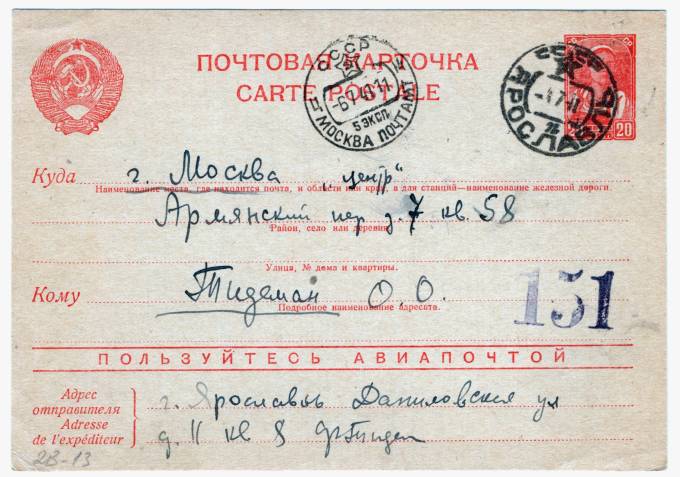 ПОЧТОВАЯ КАРТОЧКА
CARTE POSTALE
СССР
МОСКВА ПОЧТАМТ
5 ЭКСП.
ЯРОСЛАВЛЬ
20
Куда
г. Москва „центр“
Наименование места, где находится почта, и области или края, а для станций—наименование железной дороги.
Армянский пер д. 7 кв. 58
Район, село или деревня
Улица, № дома и квартиры.
Кому
Тидеман О. О.
Подробное наименование адресата.
151
ПОЛЬЗУЙТЕСЬ АВИАПОЧТОЙ
Адрес отправителя
Adresse de l'expéditeur
г. Ярославль Даниловская ул
д. 11 кв 8
2В-13